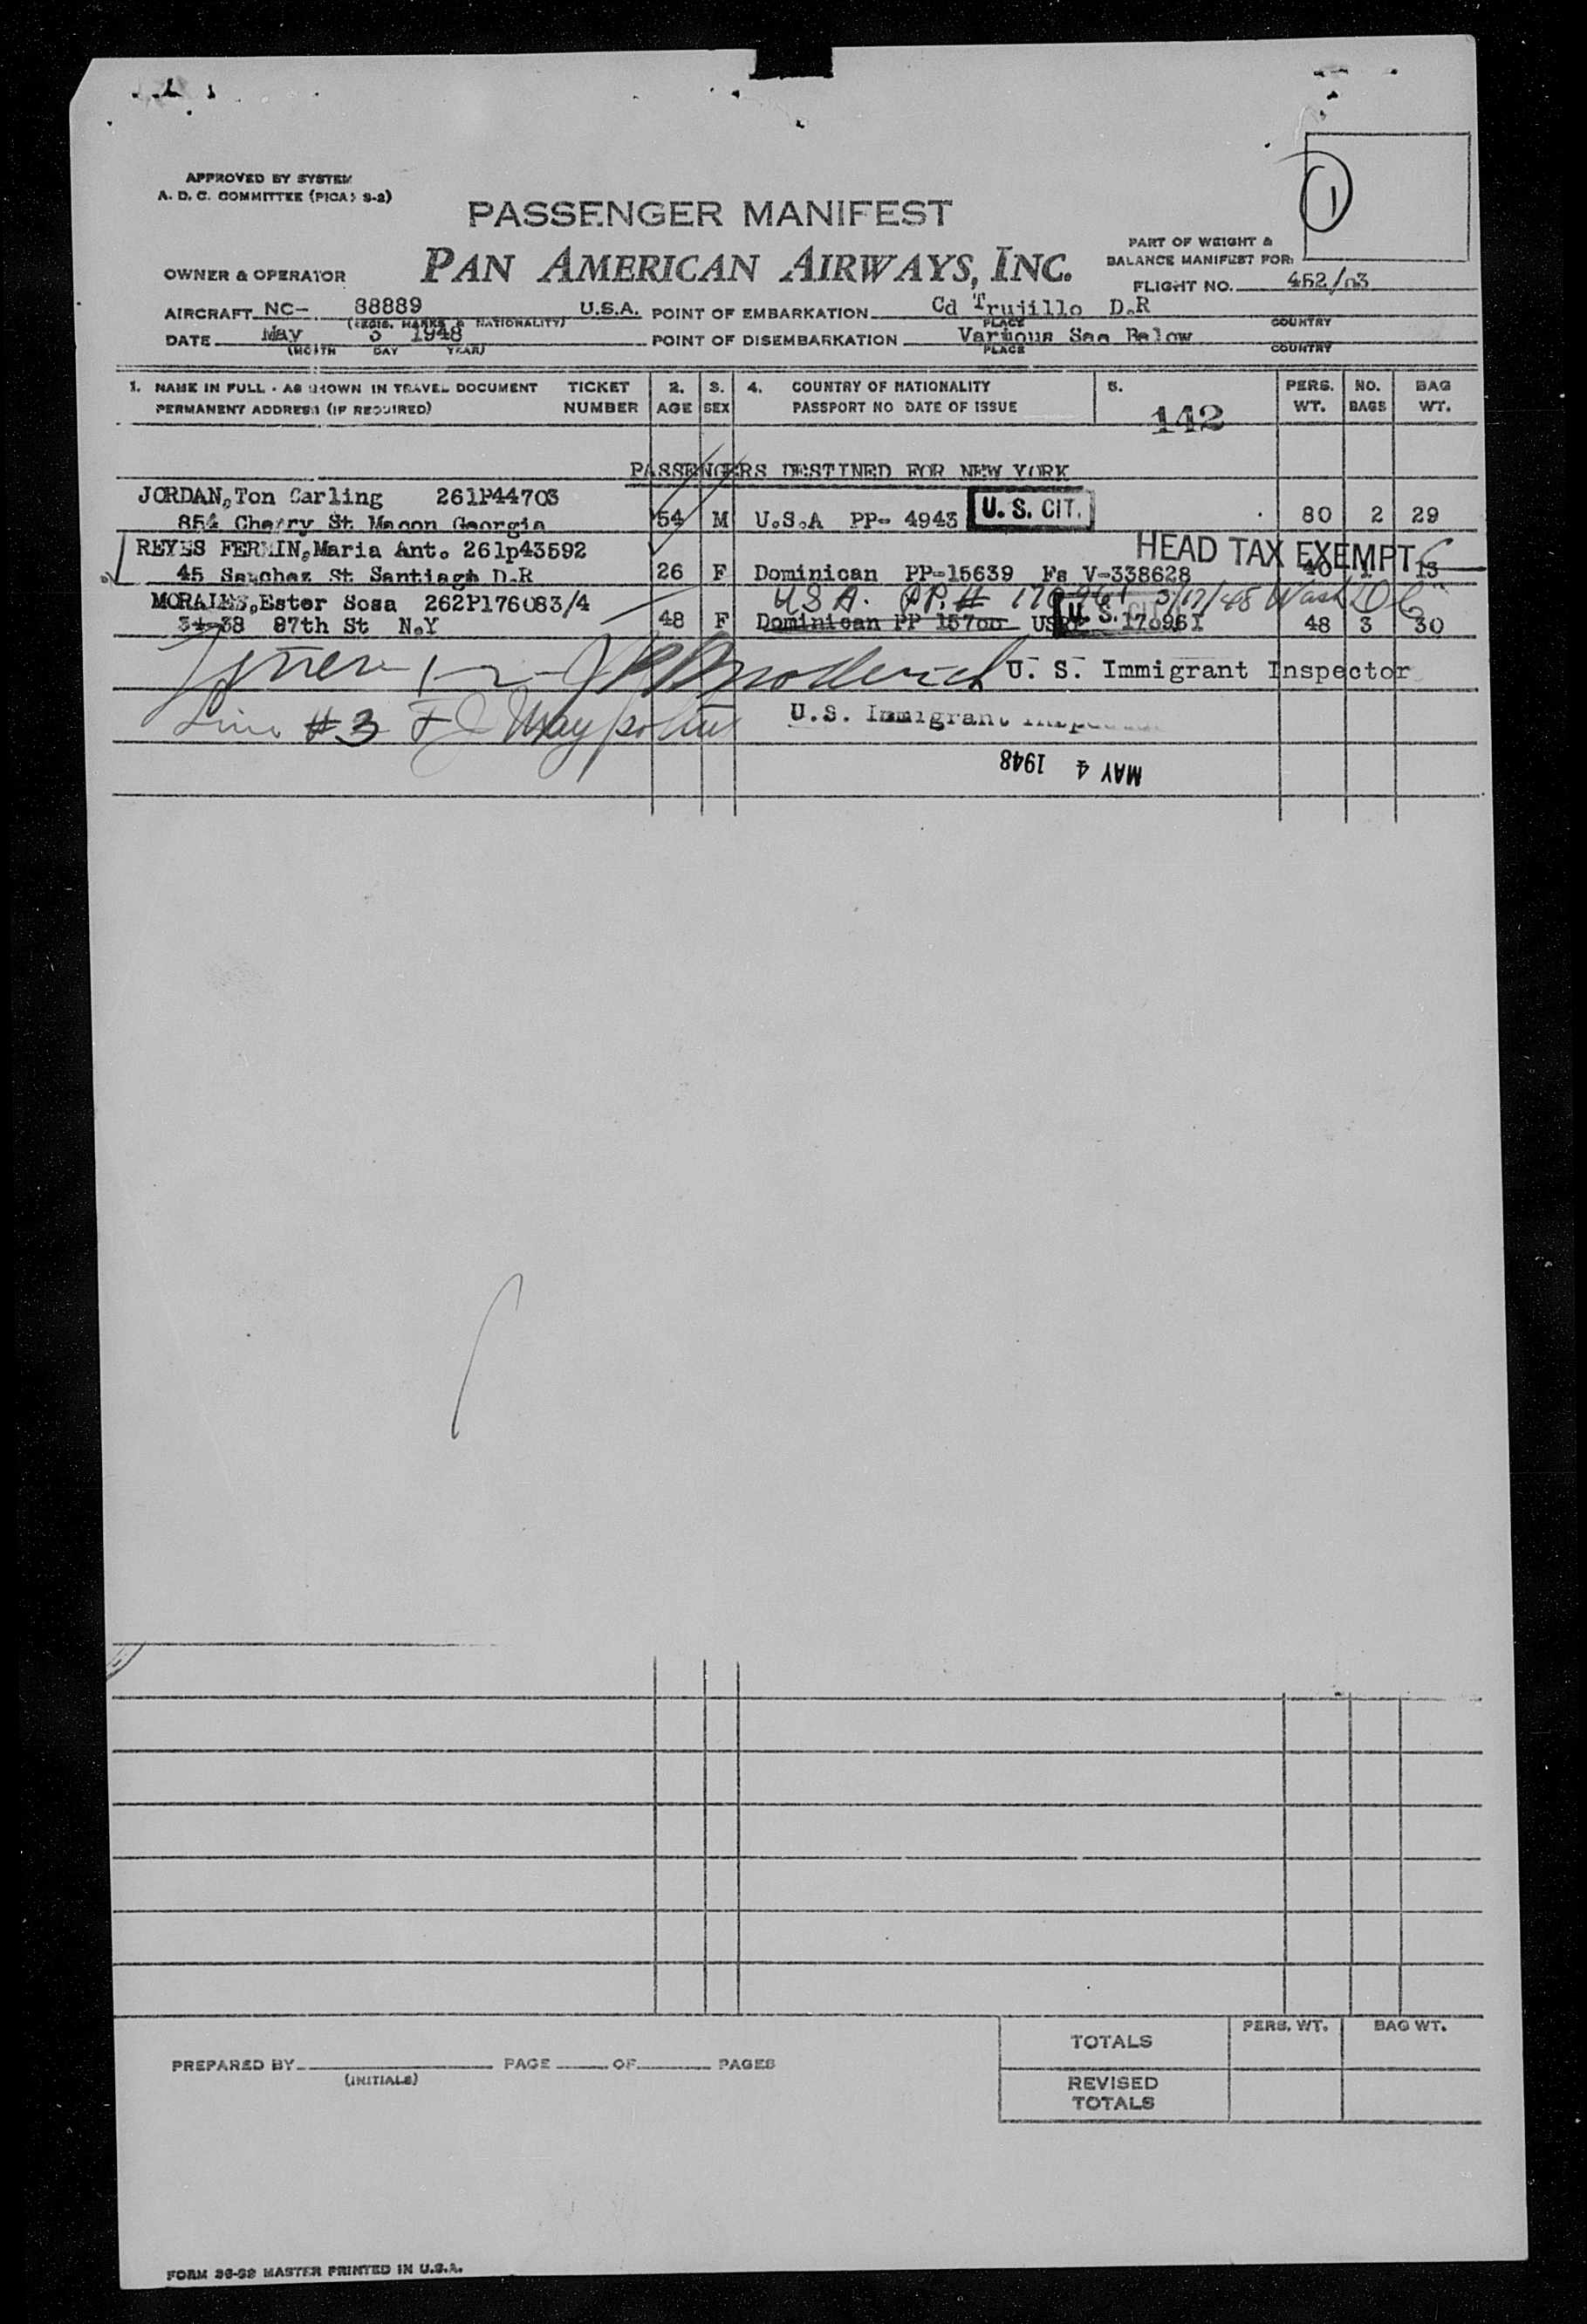 APPROVED BY SYSTEM
A. D. C. COMMITTEE (PICAS S-2)
PASSENGER MANIFEST
PAN AMERICAN AIRWAYS, INC.
OWNER & OPERATOR
PART OF WEIGHT &
BALANCE MANIFEST FOR:
1
FLIGHT NO. 462/03
AIRCRAFT NC- 88889 U.S.A. POINT OF EMBARKATION Cd Trujillo D.R
(REGIS. MARKS & NATIONALITY) PLACE COUNTRY
DATE May 3 1948 POINT OF DISEMBARKATION Various See Below
(MONTH DAY YEAR) PLACE COUNTRY
1. NAME IN FULL - AS SHOWN IN TRAVEL DOCUMENT TICKET 2. 3. 4. COUNTRY OF NATIONALITY 5. PERS. NO. BAG
PERMANENT ADDRESS (IF REQUIRED) NUMBER AGE SEX PASSPORT NO DATE OF ISSUE 142 WT. BAGS WT.
PASSENGERS DESTINED FOR NEW YORK
JORDAN,Ton Carling 261P44703
854 Cherry St Macon Georgia 54 M U.S.A PP- 4943 U. S. CIT. 80 2 29
REYES FERMIN,Maria Ant. 261p43592 HEAD TAX EXEMPT
45 Sanchez St Santiago D.R 26 F Dominican PP-15639 Fs V-338628 40 1 13
MORALES,Ester Sosa 262P176083/4 USA. PP. # 170961 3/17/48 Wash D.C.
34-38 87th St N.Y 48 F Dominican PP 15700 U. S. CIT. 170961 48 3 30
U. S. Immigrant Inspector
Line #3
U.S. Immigrant Inspector
MAY 4 1948
TOTALS PERS. WT. BAG WT.
PREPARED BY PAGE OF PAGES
(INITIALS)
REVISED
TOTALS
FORM 36-59 MASTER PRINTED IN U.S.A.